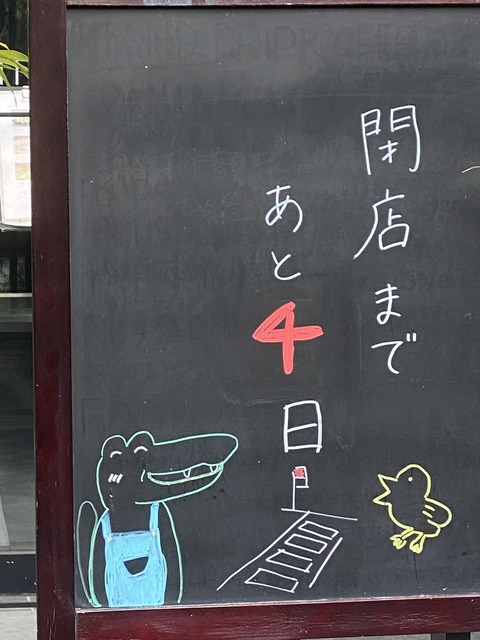 閉店まで
あと4日